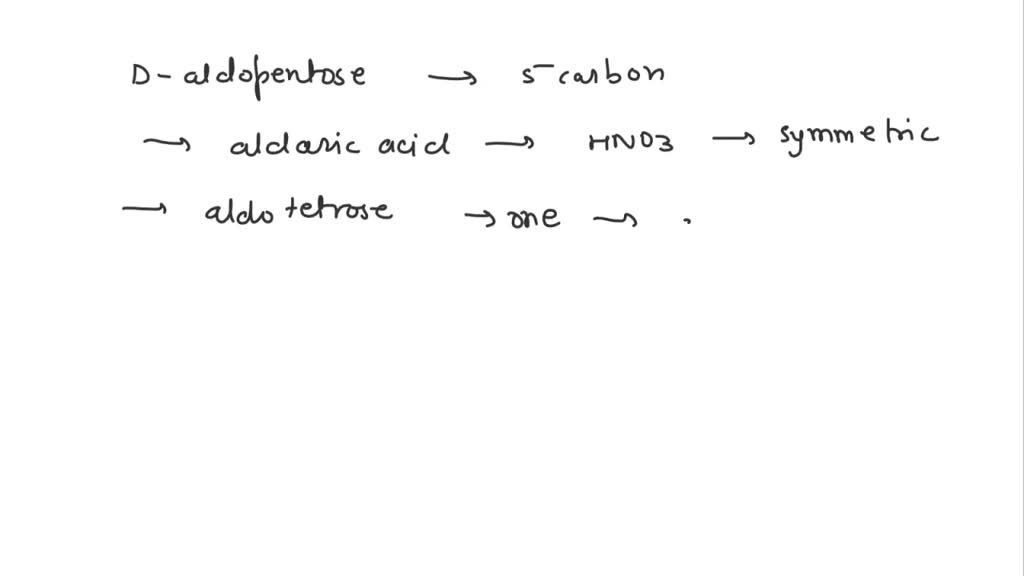 D- aldopentose → 5-carbon
→ aldaric acid → HNO3 → symmetric
→ aldo tetrose → one → .